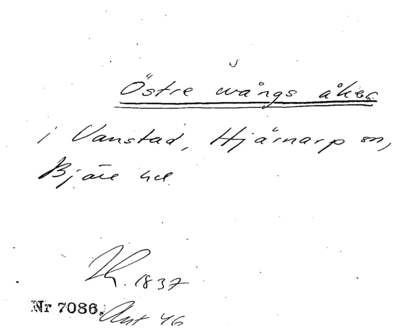 Östre wångs åker
i Vanstad, Hjärnarp sn,
Bjäre hd.
1837
Nr 7086. Ant 46